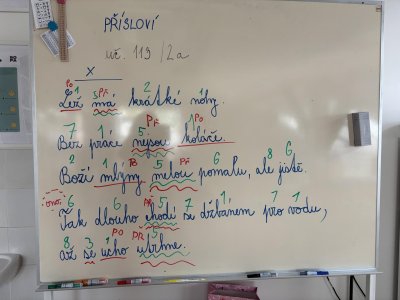 PŘÍSLOVÍ
uč. 119/2a
x
Po 1 5 Př 2 1
Lež má krátké nohy.
7 1 5 Př 1 Po
Bez práce nejsou koláče.
2 1 Po 5 Př 6 8 6
Boží mlýny melou pomalu, ale jistě.
ono 6 6 Př 5 7 1 7 1
Tak dlouho chodí se džbánem pro vodu,
8 3 1 Po Př 5
až se ucho utrhne.